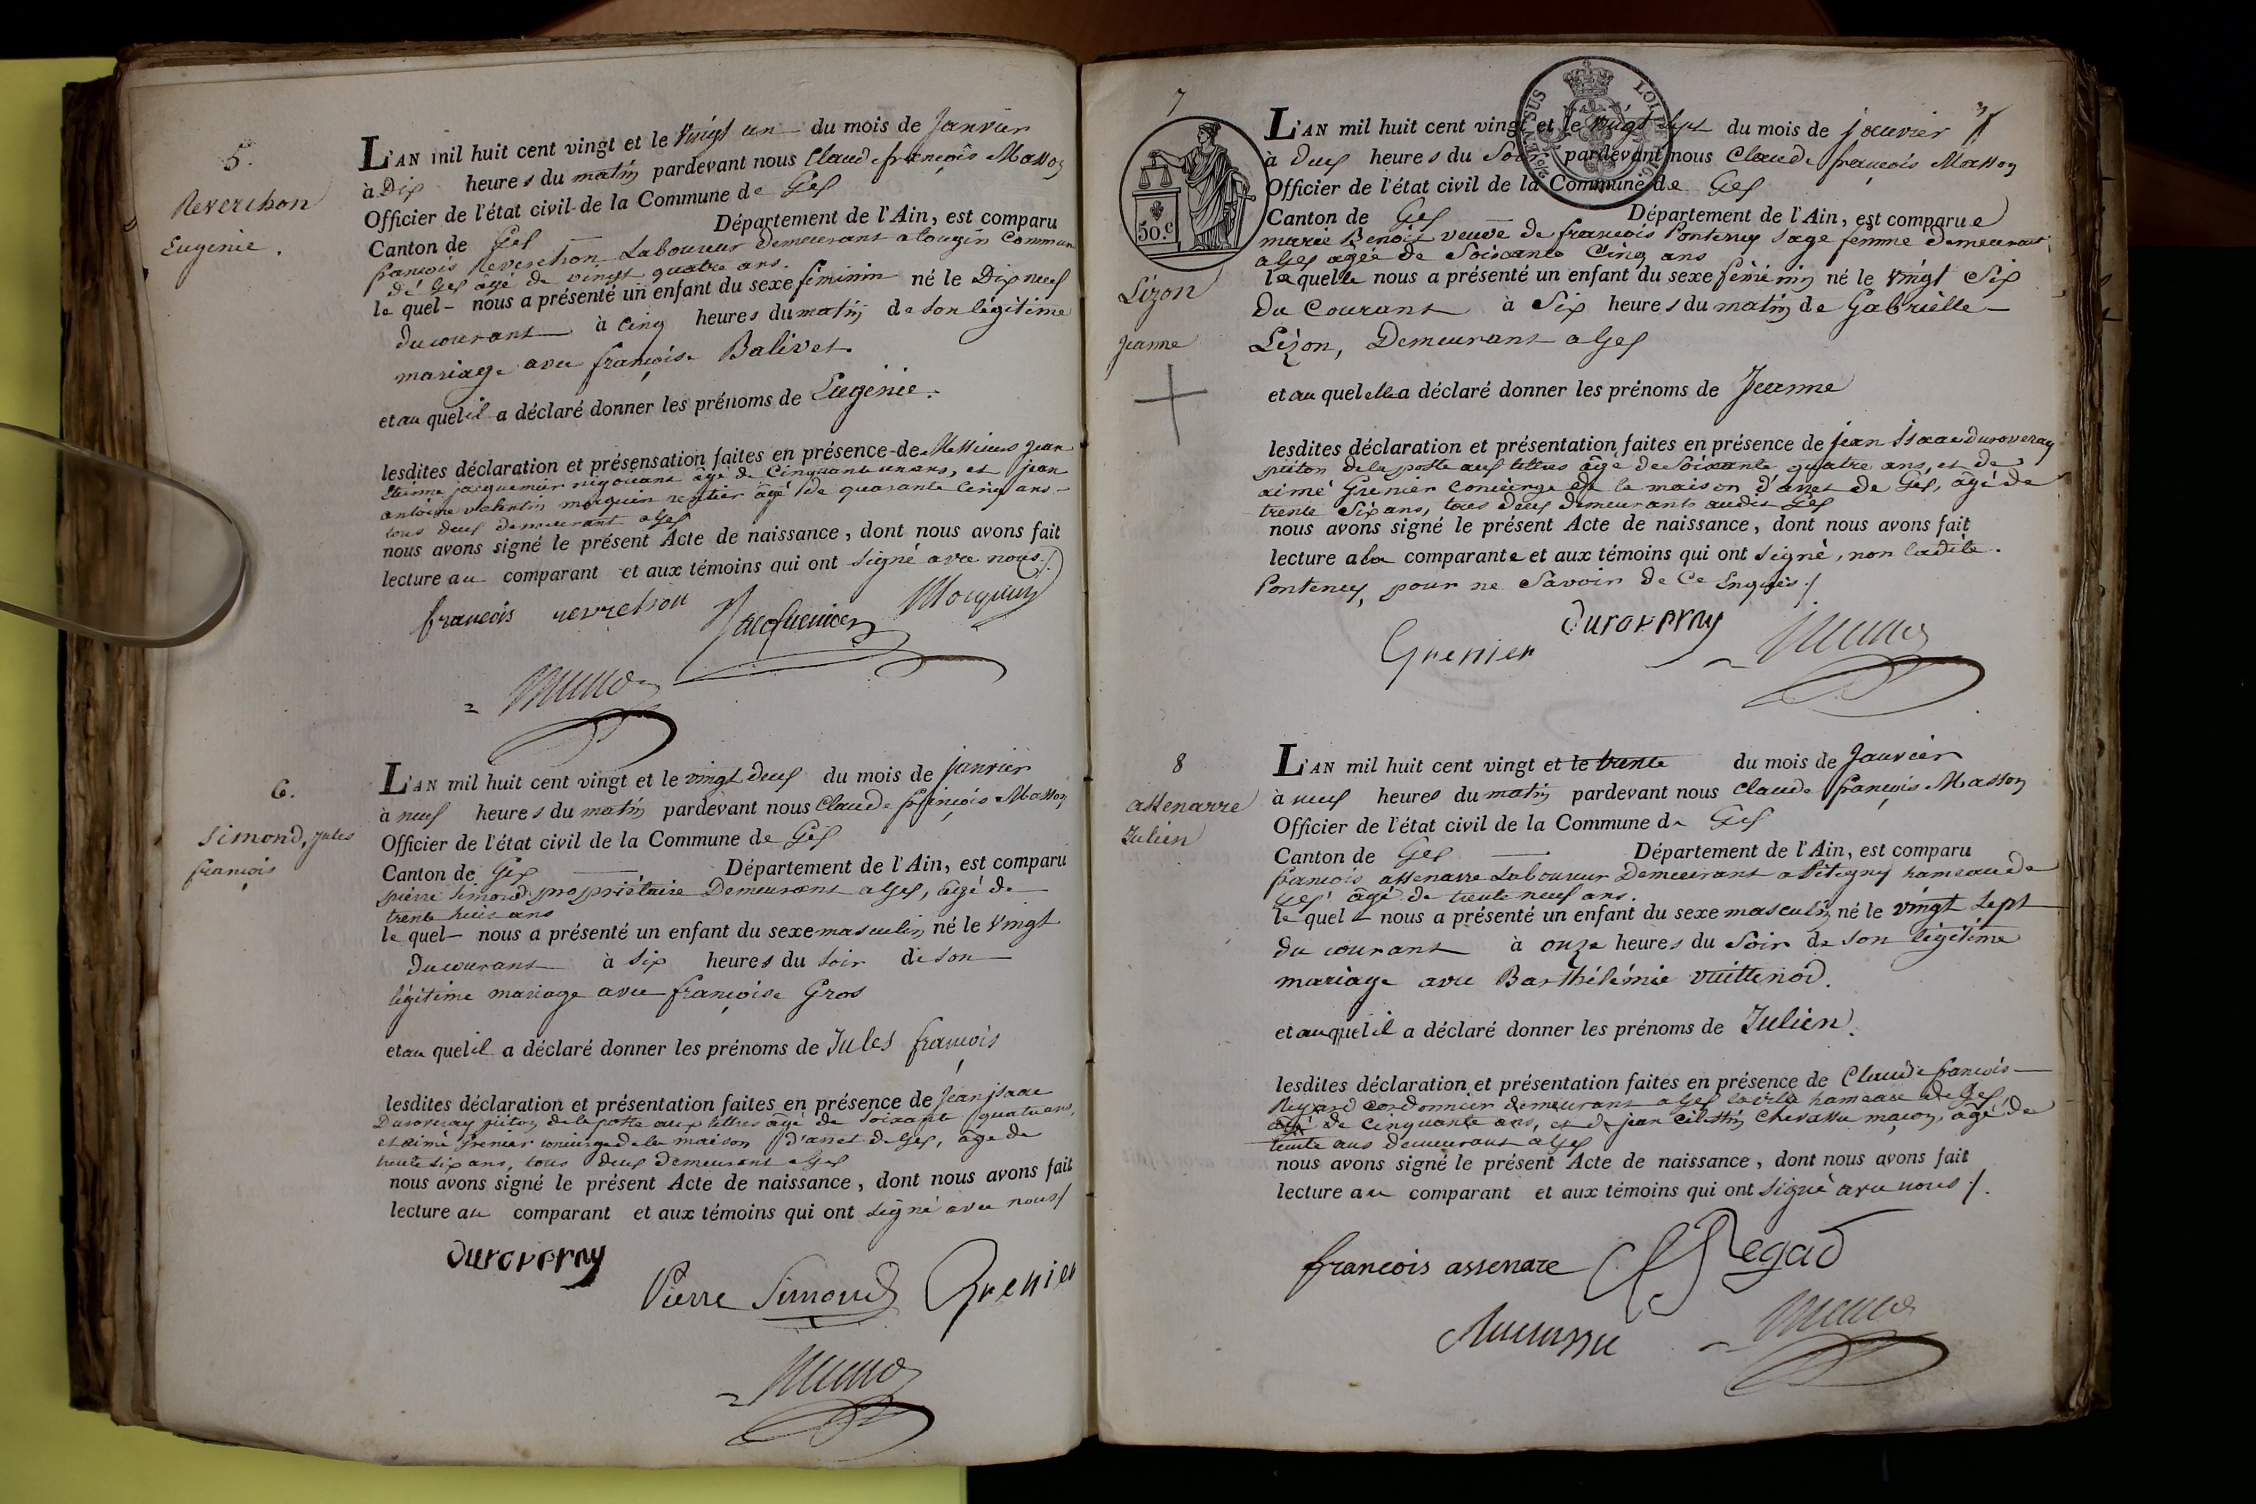 5.
Reverchon
Eugénie.
L'AN mil huit cent vingt et le vingt un du mois de Janvier
à Dix heures du matin pardevant nous Claude françois Masson
Officier de l'état civil de la Commune de Gex
Canton de Gex Département de l'Ain, est comparu
françois Reverchon Laboureur demeurant a tougin Commune
de Gex agé de vingt quatre ans.
le quel nous a présenté un enfant du sexe féminin né le Dix neuf
du courant à cinq heures du matin de son légitime
mariage avec françoise Balivet
et au quel il a déclaré donner les prénoms de Eugénie.
lesdites déclaration et présensation faites en présence de Messieurs Jean
Etienne jacquemier négociant âgé de Cinquante un ans, et jean
antoine valentin morquin rentier âgé de quarante Cinq ans
tous deux demeurant a Gex
nous avons signé le présent Acte de naissance, dont nous avons fait
lecture au comparant et aux témoins qui ont signé avec nous ./.
françois revrchon Jacquemier Morquin
6.
Simond, Jules
françois
L'AN mil huit cent vingt et le vingt deux du mois de janvier
à neuf heures du matin pardevant nous Claude françois Masson
Officier de l'état civil de la Commune de Gex
Canton de Gex Département de l'Ain, est comparu
pierre Simond propriétaire Demeurant a Gex, âgé de
trente huit ans
le quel nous a présenté un enfant du sexe masculin né le Vingt
du courant à six heures du soir de son
légitime mariage avec françoise Gros
et au quel il a déclaré donner les prénoms de Jules françois
lesdites déclaration et présentation faites en présence de Jean isaac
Duroveray piéton de la poste aux lettres âgé de soixante quatre ans,
et aimé Grenier concierge de la maison d'arret de Gex, âgé de
trente six ans, tous deux demeurant a Gex
nous avons signé le présent Acte de naissance, dont nous avons fait
lecture au comparant et aux témoins qui ont signé avec nous /
Duroveray
Pierre Simond Grenier
7
50.c
Lizon
Jeanne
L'AN mil huit cent vingt et le vingt sept du mois de janvier
à deux heures du Soir pardevant nous Claude françois Masson
Officier de l'état civil de la Commune de Gex
Canton de Gex Département de l'Ain, est comparue
marie Benoit veuve de françois Ponteney sage femme demeurant
a Gex agée de Soixante Cinq ans
laquelle nous a présenté un enfant du sexe féminin né le vingt Six
du Courant à Six heures du matin de Gabrielle
Lizon, Demeurant a Gex
et au quel elle a déclaré donner les prénoms de Jeanne
lesdites déclaration et présentation faites en présence de jean isaac Duroveray
piéton de la poste aux lettres âgé de Soixante quatre ans, et de
aimé Grenier Concierge de la maison d'arret de Gex, âgé de
trente Six ans, tous deux demeurants audit Gex
nous avons signé le présent Acte de naissance, dont nous avons fait
lecture a la comparante et aux témoins qui ont signé, non ladite
Ponteney, pour ne Savoir de Ce Enquis ./
Duroveray
Grenier
8
assenarre
Julien
L'AN mil huit cent vingt et le trente du mois de Janvier
à neuf heures du matin pardevant nous Claude françois Masson
Officier de l'état civil de la Commune de Gex
Canton de Gex Département de l'Ain, est comparu
françois assenarre Laboureur Demeurant a Pitegny hameau de
Gex âgé de trente neuf ans.
le quel nous a présenté un enfant du sexe masculin né le vingt Sept
du courant à onze heures du Soir de son légitime
mariage avec Barthélémie vuittenod.
et au quel il a déclaré donner les prénoms de Julien.
lesdites déclaration et présentation faites en présence de Claude françois
Regard Cordonnier demeurant a Gex la ville hameau de Gex
âgé de cinquante ans, et de jean Célestin Chevassu maçon, âgé de
trente ans demeurant a Gex
nous avons signé le présent Acte de naissance, dont nous avons fait
lecture au comparant et aux témoins qui ont signé avec nous ./.
francois assenare Regad